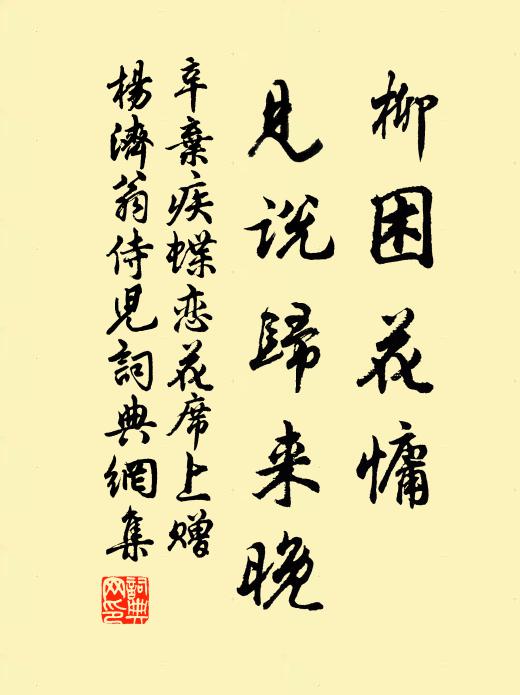 柳困花慵
见说歸来晚
辛棄疾蝶恋花席上赠
楊濟翁侍児詞典網集
詞典网印